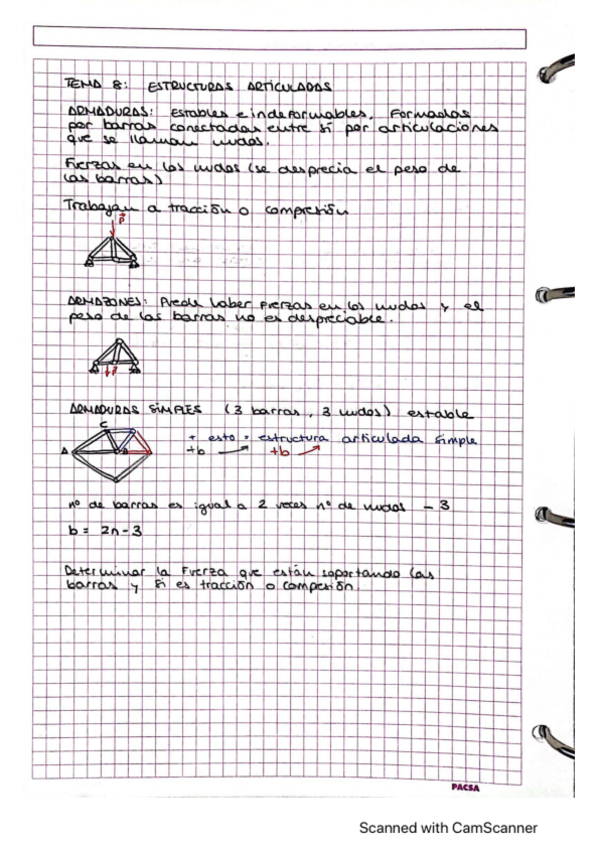 TEMA 8: ESTRUCTURAS ARTICULADAS
ARMADURAS: Estables e indeformables. Formadas
por barras conectadas entre sí por articulaciones
que se llaman nudos.
Fuerzas en los nudos (se desprecia el peso de
las barras)
Trabajan a tracción o compresión
P
ARMAZONES: Puede haber fuerzas en los nudos y el
peso de las barras no es despreciable.
P
ARMADURAS SIMPLES (3 barras, 3 nudos) estable
C
+ esto = estructura articulada simple
A B +b +b
nº de barras es igual a 2 veces nº de nudos - 3
b = 2n-3
Determinar la Fuerza que están soportando las
barras y si es tracción o compesión.
PACSA
Scanned with CamScanner